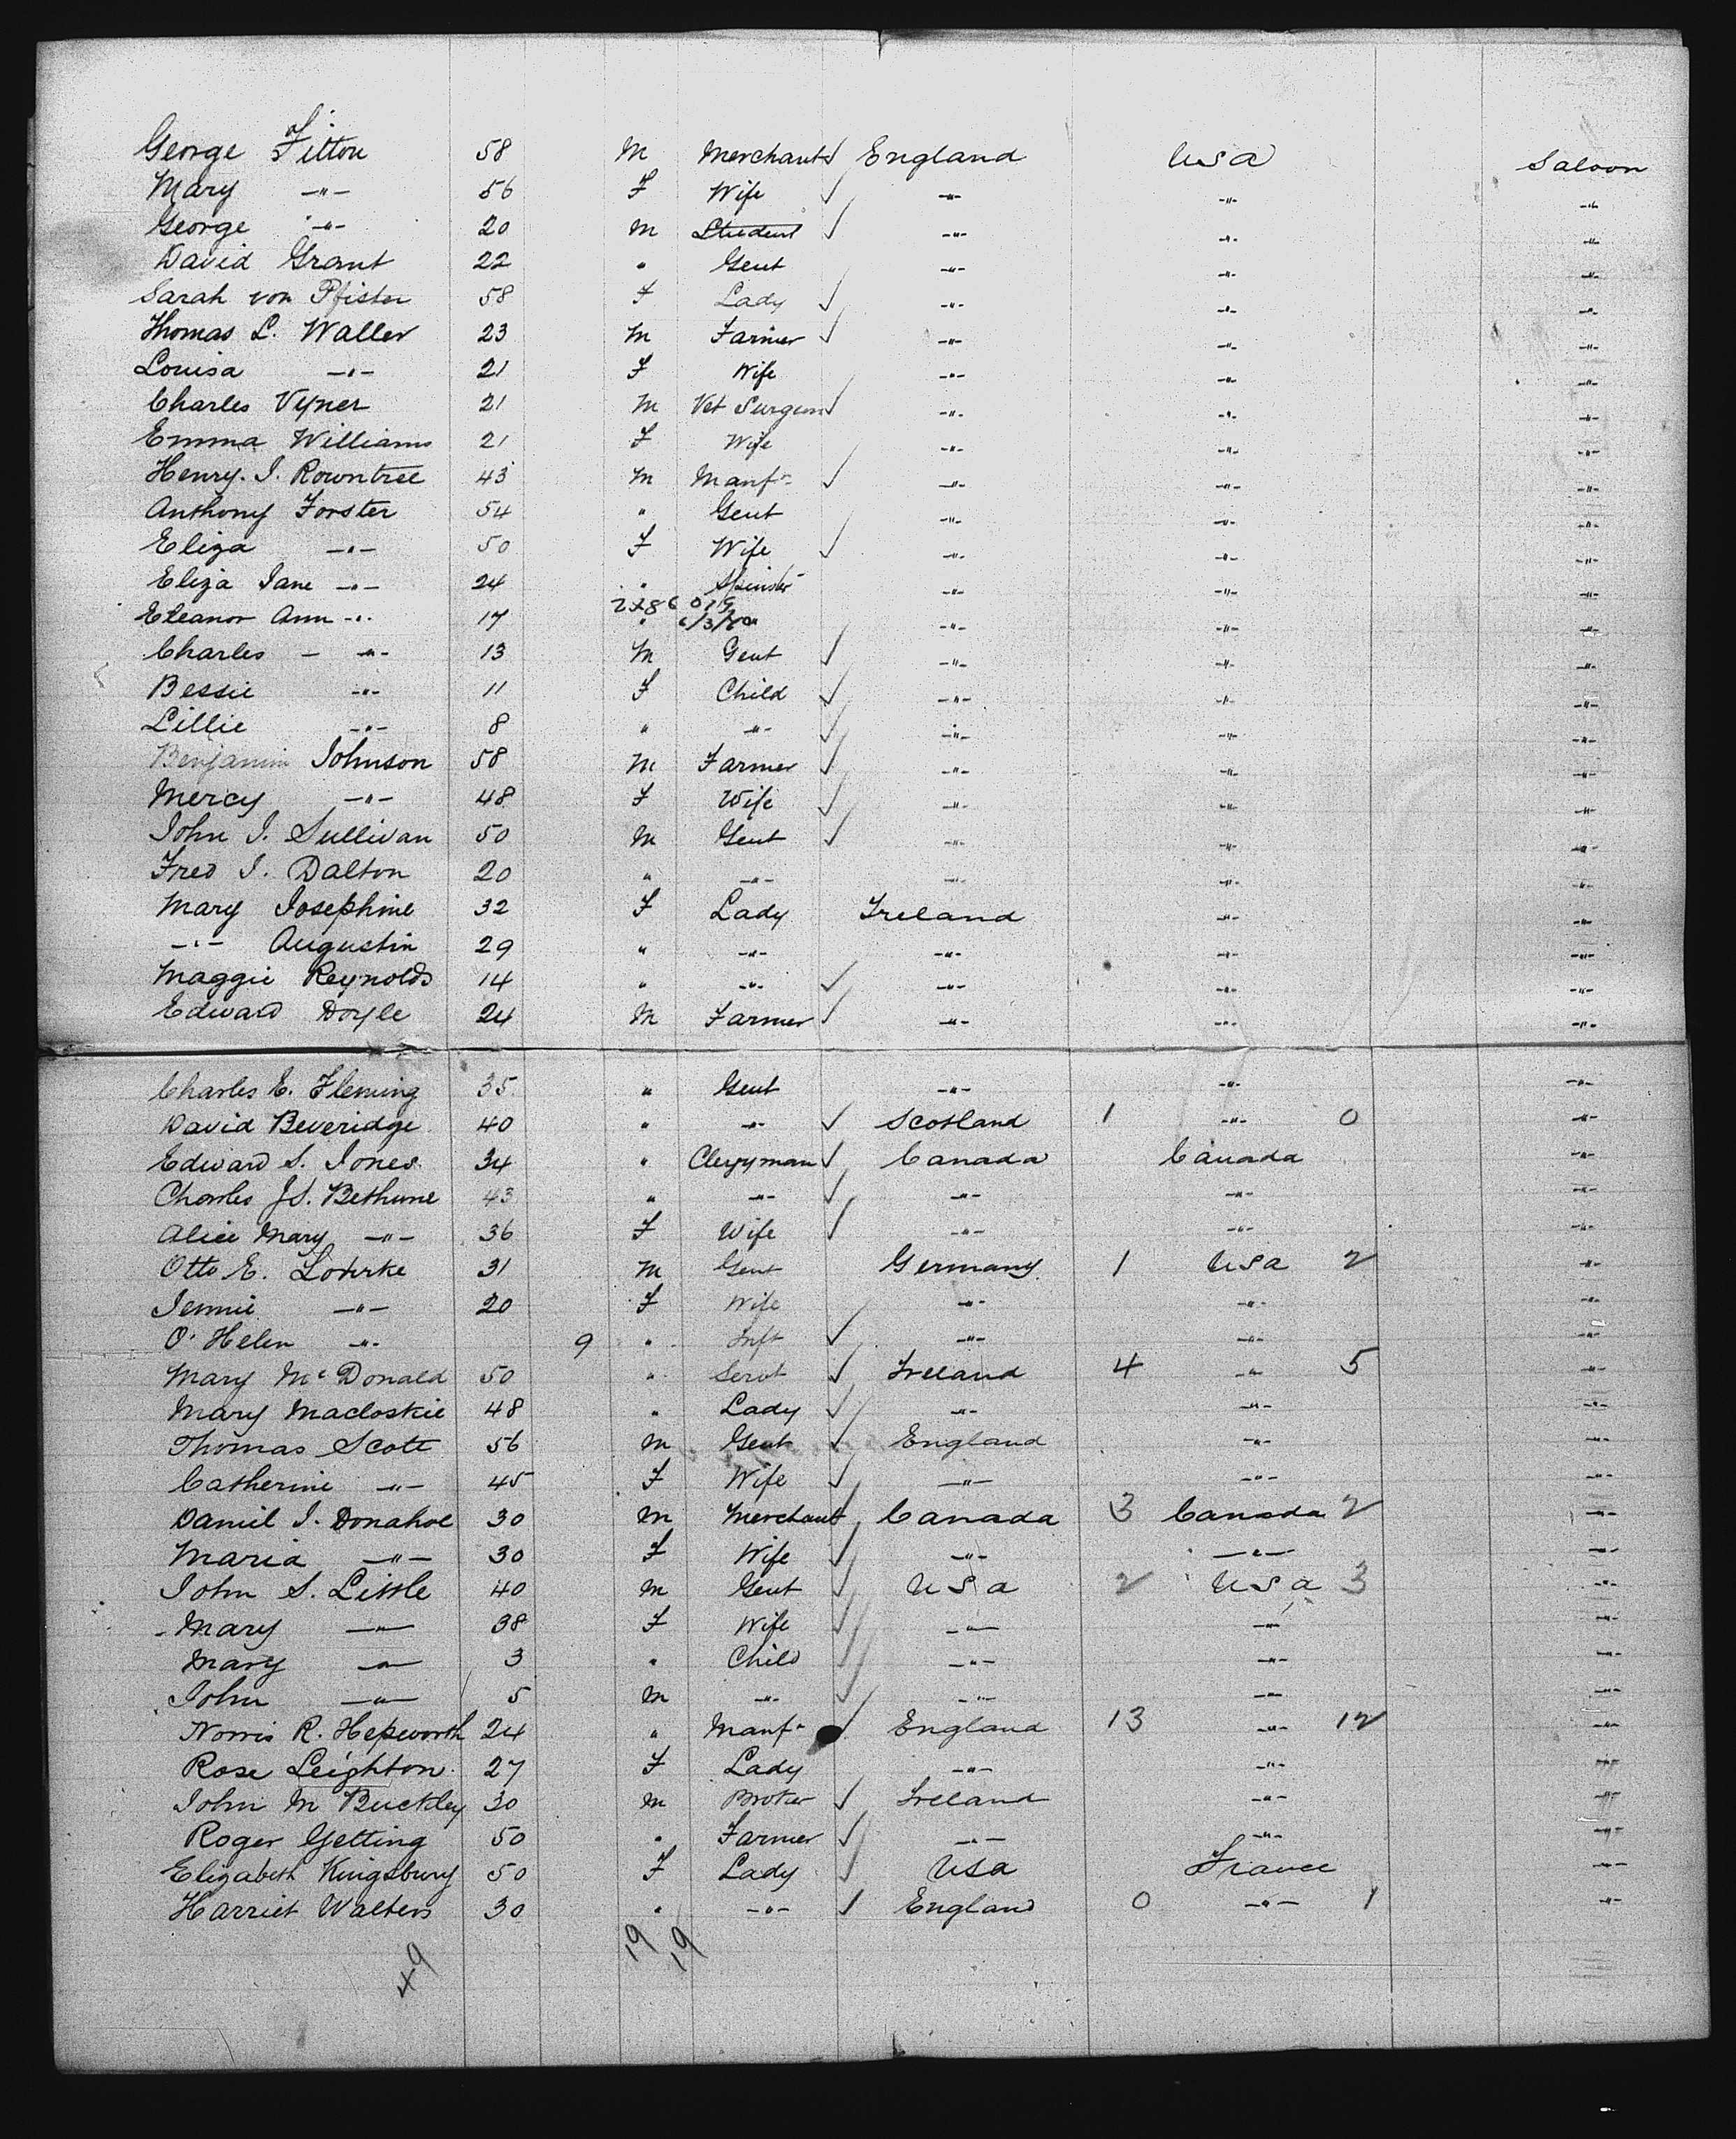 George Fitton 58 M Merchant England USA Saloon
Mary -"- 56 F Wife -"- -"- -"-
George -"- 20 M Student -"- -"- -"-
David Grant 22 " Gent -"- -"- -"-
Sarah von Pfister 58 F Lady -"- -"- -"-
Thomas L. Waller 23 M Farmer -"- -"- -"-
Louisa -"- 21 F Wife -"- -"- -"-
Charles Vyner 21 M Vet Surgeon -"- -"- -"-
Emma Williams 21 F Wife -"- -"- -"-
Henry. I. Rowntree 43 M Manfr -"- -"- -"-
Anthony Forster 54 " Gent -"- -"- -"-
Eliza -"- 50 F Wife -"- -"- -"-
Eliza Jane -"- 24 " Spinster -"- -"- -"-
Eleanor Ann -"- 17 " -"- -"- -"-
Charles - -"- 13 M Gent -"- -"- -"-
Bessie -"- 11 F Child -"- -"- -"-
Lillie -"- 8 " -"- -"- -"- -"-
Benjamin Johnson 58 M Farmer -"- -"- -"-
Mercy -"- 48 F Wife -"- -"- -"-
John J. Sullivan 50 M Gent -"- -"- -"-
Fred J. Dalton 20 " -"- -"- -"- -"-
Mary Josephine 32 F Lady Ireland -"- -"-
-"- Augustin 29 " -"- -"- -"- -"-
Maggie Reynolds 14 " -"- -"- -"- -"-
Edward Doyle 24 M Farmer -"- -"- -"-
Charles E. Fleming 35 " Gent -"- -"- -"-
David Beveridge 40 " -"- Scotland 1 -"- 0 -"-
Edward S. Jones. 34 " Clergyman Canada Canada -"-
Charles J S. Bethune 43 " -"- -"- -"- -"-
Alice Mary -"- 36 F Wife -"- -"- -"-
Otto E. Lohrke 31 M Gent Germany 1 USA 2 -"-
Jennie -"- 20 F Wife -"- -"- -"-
O' Helen -"- 9 " Inft -"- -"- -"-
Mary McDonald 50 " Servt Ireland 4 -"- 5 -"-
Mary Macloskie 48 " Lady -"- -"- -"-
Thomas Scott 56 M Gent England -"- -"-
Catherine -"- 45 F Wife -"- -"- -"-
Daniel J. Donahoe 30 M Merchant Canada 3 Canada 2 -"-
Maria -"- 30 F Wife -"- -"- -"-
John S. Little 40 M Gent USA 2 USA 3 -"-
Mary -"- 38 F Wife -"- -"- -"-
Mary -"- 3 " Child -"- -"- -"-
John -"- 5 M -"- -"- -"- -"-
Norris R. Hepworth 24 " Manfr England 13 -"- 12 -"-
Rose Leighton. 27 F Lady -"- -"- -"-
John M Buckley 30 M Broker Ireland -"- -"-
Roger Getting 50 " Farmer -"- -"- -"-
Elizabeth Kingsbury 50 F Lady USA France -"-
Harriet Walters 30 " -"- England 0 -"- 1 -"-
49 19 19